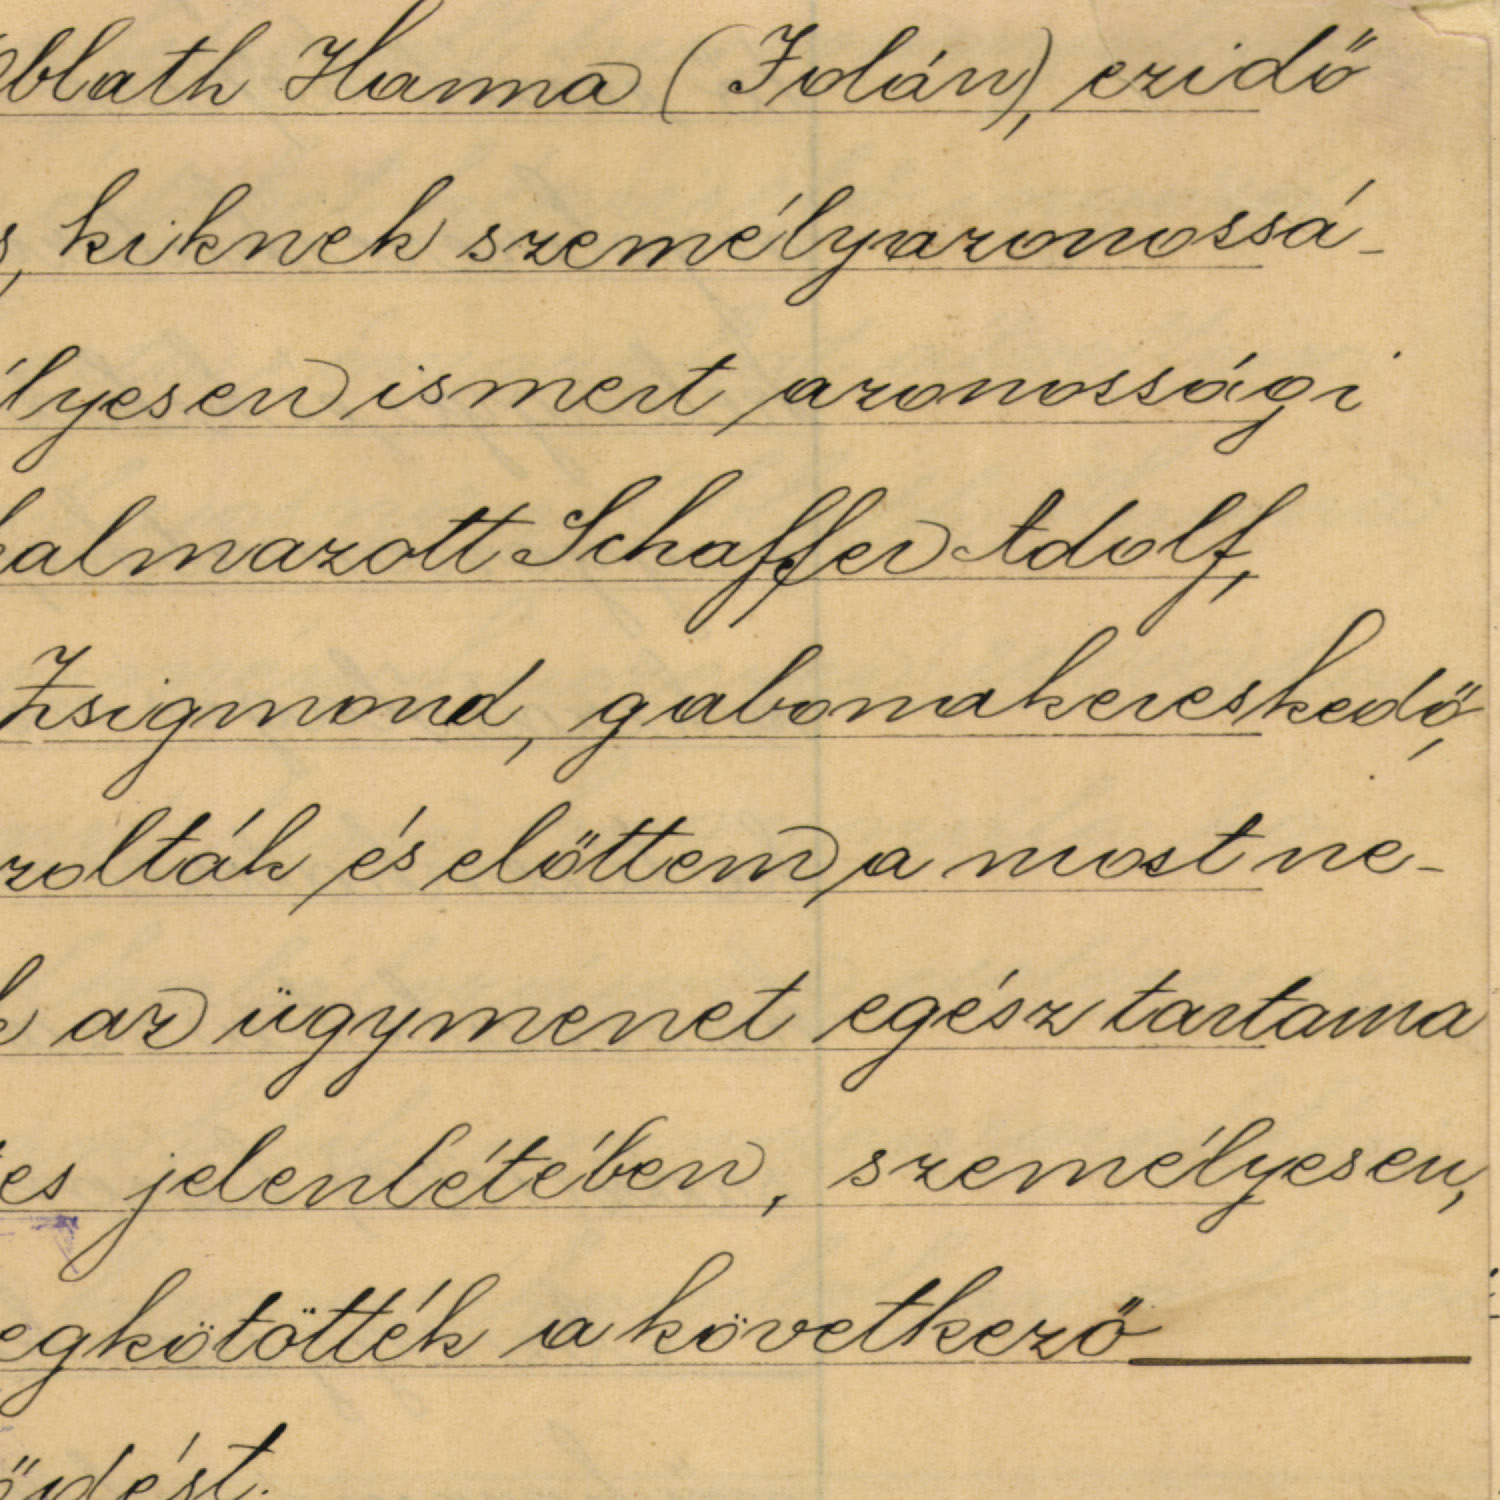 Oblath Hanna (Jolán), ezidő
s, kiknek személyazonossá-
élyesen ismert azonossági
kalmazott Schaffer Adolf,
Zsigmond, gabonakereskedő,
zolták és előttem a most ne-
k az ügymenet egész tartama
es jelenlétében, személyesen,
egkötötték a következő
ődést.